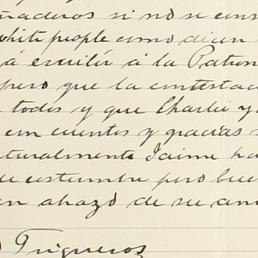 ñaderos si no se cons
white people como dicen
a escribir á la Patron
pero que la contestac
todos y que Charlie y
con cuentos y gracias s
naturalmente Jaime ha
de costumbre pero bue
un abrazo de su am
Trigueros